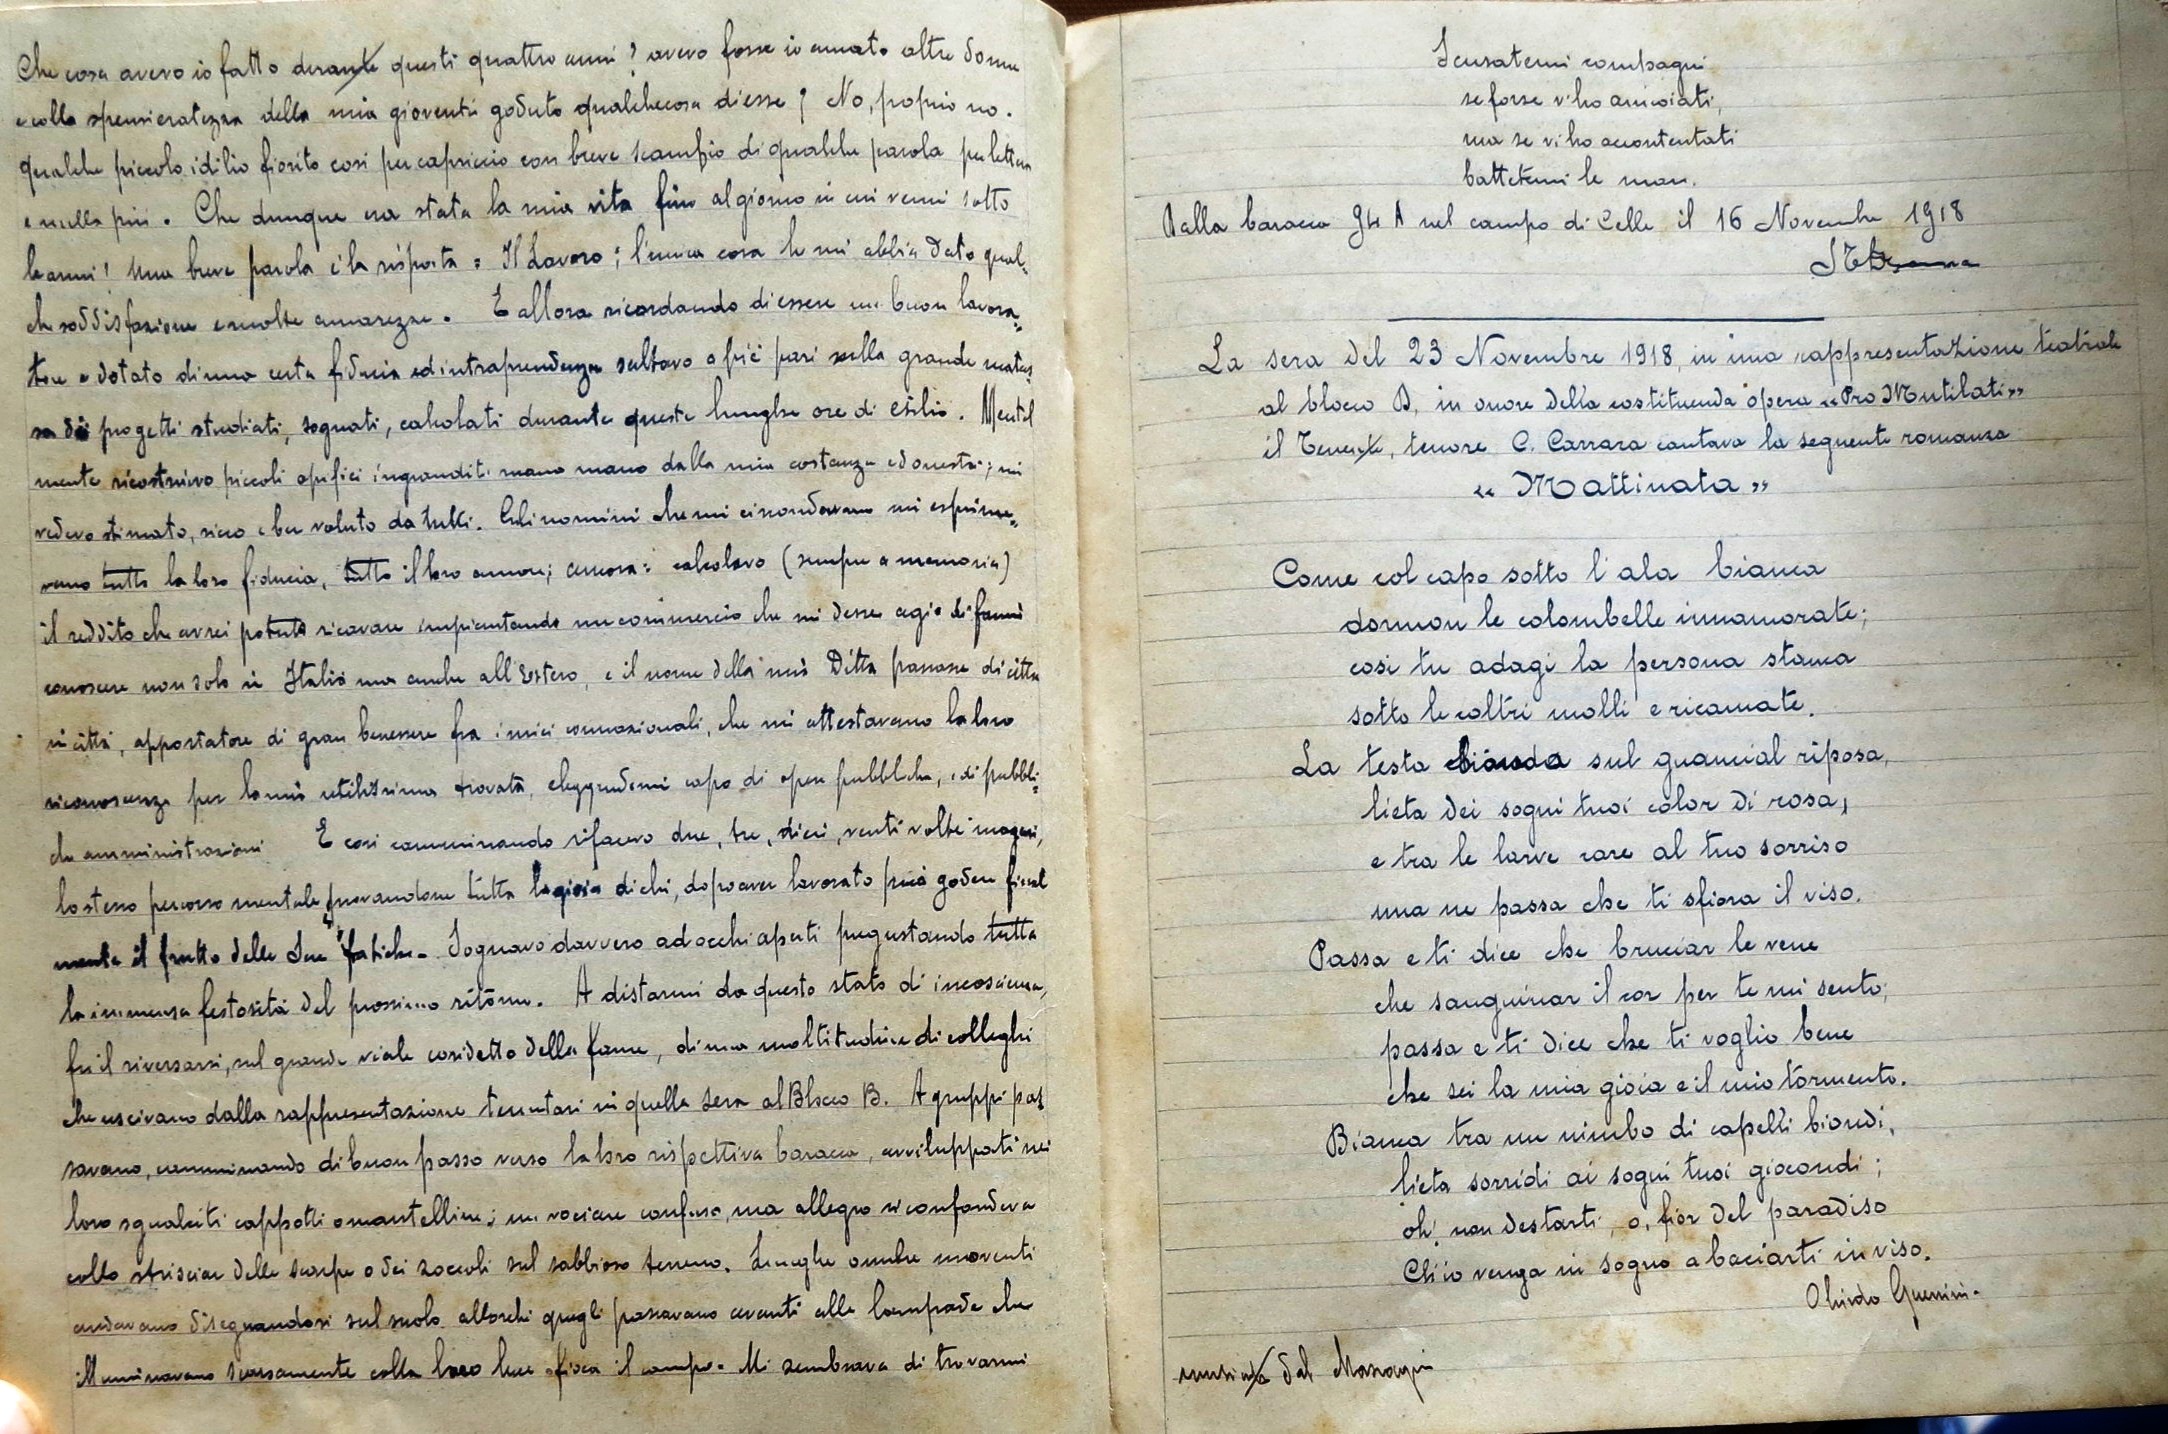 Che cosa avevo io fatto durante questi quattro anni? avevo forse io amato altre donne
e colla spensieratezza della mia gioventù goduto qualchecosa di esse? No, proprio no.
qualche piccolo idilio fiorito così per capriccio con breve scambio di qualche parola per lettera
e nulla più. Che dunque era stata la mia vita fino al giorno in cui venni sotto
le armi! Una breve parola è la risposta: Il Lavoro; l'unica cosa che mi abbia dato qual=
che soddisfazione e molte amarezze. E allora ricordando di essere un buon lavora=
tore e dotato di una certa fiducia ed intraprendenza saltavo a piè pari nella grande matas
sa di progetti studiati, sognati, calcolati durante queste lunghe ore di esilio. Mental
mente ricostruivo piccoli opifici ingranditi mano mano dalla mia costanza ed onestà; mi
vedevo stimato, ricco e ben voluto da tutti. Gli uomini che mi circondavano mi esprime=
vano tutta la loro fiducia, tutto il loro amore; ancora: calcolavo (sempre a memoria)
il reddito che avrei potuto ricavare impiantando un commercio che mi desse agio di farmi
conoscere non solo in Italia ma anche all'Estero, e il nome della mia Ditta passasse di città
in città, apportatore di gran benessere fra i miei connazionali, che mi attestavano la loro
riconoscenza per la mia utilissima trovata, eleggendomi capo di opere pubbliche, e di pubbli=
che amministrazioni E così camminando rifacevo due, tre, dieci, venti volte magari,
lo stesso percorso mentale provandone tutta la gioia di chi, dopo aver lavorato può godere final
mente il frutto delle sue fatiche. Sognavo davvero ad occhi aperti pregustando tutta
la immensa festosità del prossimo ritorno. A distarmi da questo stato di incoscienza,
fu il riversarsi, sul grande viale cosidetto della fame, di una moltitudine di colleghi
che uscivano dalla rappresentazione tenutasi in quella sera al Blocco B. A gruppi pas
savano, camminando di buon passo verso la loro rispettiva baracca, avviluppati nei
loro sgualciti cappotti o mantelline; un vociare confuso, ma allegro si confondeva
collo strisciar delle scarpe o dei zoccoli sul sabbioso terreno. Lunghe ombre moventi
andavano disegnandosi sul suolo allorchè quegli passavano avanti alle lampade che
illuminavano scarsamente colla loro luce fioca il campo. Mi sembrava di trovarmi
Scusatemi compagni
se forse vi ho annoiati,
ma se vi ho accontentati
battetemi le man.
Dalla baracca 94 A nel campo di Celle il 16 Novembre 1918
La sera del 23 Novembre 1918, in una rappresentazione teatrale
al blocco B, in onore della costituenda opera "Pro Mutilati"
il Tenente, tenore C. Carrara cantava la seguente romanza
"Mattinata"
Come col capo sotto l'ala bianca
dormon le colombelle innamorate;
così tu adagi la persona stanca
sotto le coltri molli e ricamate.
La testa bionda sul guancial riposa,
lieta dei sogni tuoi color di rosa,
e tra le larve care al tuo sorriso
una ne passa che ti sfiora il viso.
Passa e ti dice che bruciar le vene
che sanguinar il cor per te mi sento;
passa e ti dice che ti voglio bene
che sei la mia gioia e il mio tormento.
Bianca tra un nimbo di capelli biondi,
lieta sorridi ai sogni tuoi giocondi;
oh! non destarti, o, fior del paradiso
Ch'io venga in sogno a baciarti in viso.
Olindo Guerrini.
musica del Mascagni